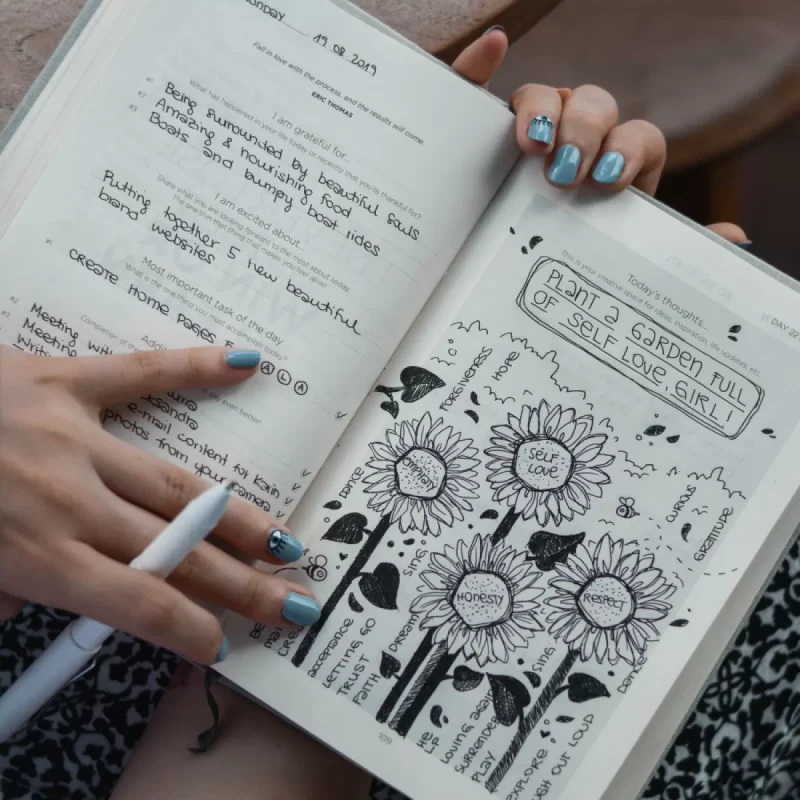 MONDAY 19.08.2019
Fall in love with the process, and the results will come.
ERIC THOMAS
I am grateful for...
What has happened in your life today or recently that you're thankful for?
#1 Being surrounded by beautiful souls
#2 Amazing & nourishing food
#3 Boats and bumpy boat rides
I am excited about...
Share what you are looking forward to the most about today.
The one thin that thing that makes you feel alive!
Putting together 5 new beautiful
brand websites
Most important task of the day
What is the one thing you must accomplish today?
#1 CREATE HOME PAGES
#2 Meeting with
#3 Meeting
e-mail content for Karin
photos from your camera
DAY 22
Today's thoughts...
This is your creative space for ideas, inspiration, life updates, etc.
PLANT A GARDEN FULL
OF SELF LOVE, GIRL!
FORGIVENESS
HOPE
EMPATHY
SELF
LOVE
CURIOUS
GRATITUDE
DANCE
SING
HONESTY
RESPECT
ACCEPTANCE
LETTING GO
TRUST
FAITH
Dream
SING
LOVING
SURRENDER
PLAY
EXPLORE
OUT LOUD
109